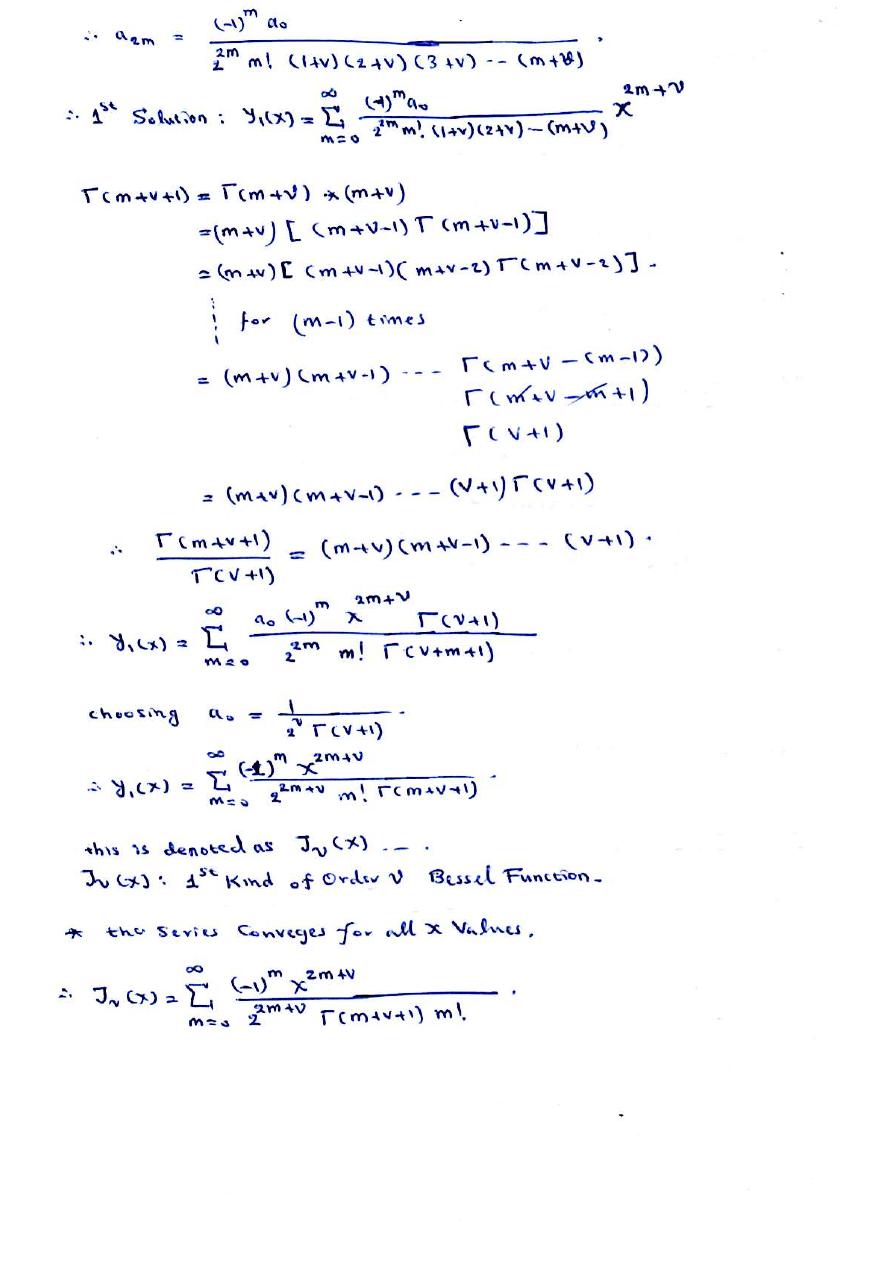 ∴ a₂ₘ = (-1)^m a₀ / 2^2m m! (1+ν)(2+ν)(3+ν) -- (m+ν) ,
∴ 1st Solution : y₁(x) = ∑_{m=0}^{∞} (-1)^m a₀ / 2^2m m! (1+ν)(2+ν) – (m+ν) x^2m+ν
Γ(m+ν+1) = Γ(m+ν) * (m+ν)
=(m+ν) [ (m+ν-1) Γ (m+ν-1)]
= (m+ν) [ (m+ν-1)( m+ν-2) Γ(m+ν-2)] .
for (m-1) times
= (m+ν) (m+ν-1) --- Γ(m+ν – (m-1))
Γ(m+ν – m+1)
Γ(ν+1)
= (m+ν)(m+ν-1) ---- (ν+1) Γ(ν+1)
∴ Γ(m+ν+1) / Γ(ν+1) = (m+ν)(m+ν-1) ---- (ν+1) .
∴ y₁(x) = ∑_{m=0}^{∞} a₀ (-1)^m x^2m+ν Γ(ν+1) / 2^2m m! Γ(ν+m+1)
choosing a₀ = 1 / 2^ν Γ(ν+1) .
∴ y₁(x) = ∑_{m=0}^{∞} (-1)^m x^2m+ν / 2^2m+ν m! Γ(m+ν+1) .
this is denoted as Jν(x) --- .
Jν(x) : 1st Kind of Order ν Bessel Function.
* the Series Conveges for all x Values.
∴ Jν(x) = ∑_{m=0}^{∞} (-1)^m x^2m+ν / 2^2m+ν Γ(m+ν+1) m! .